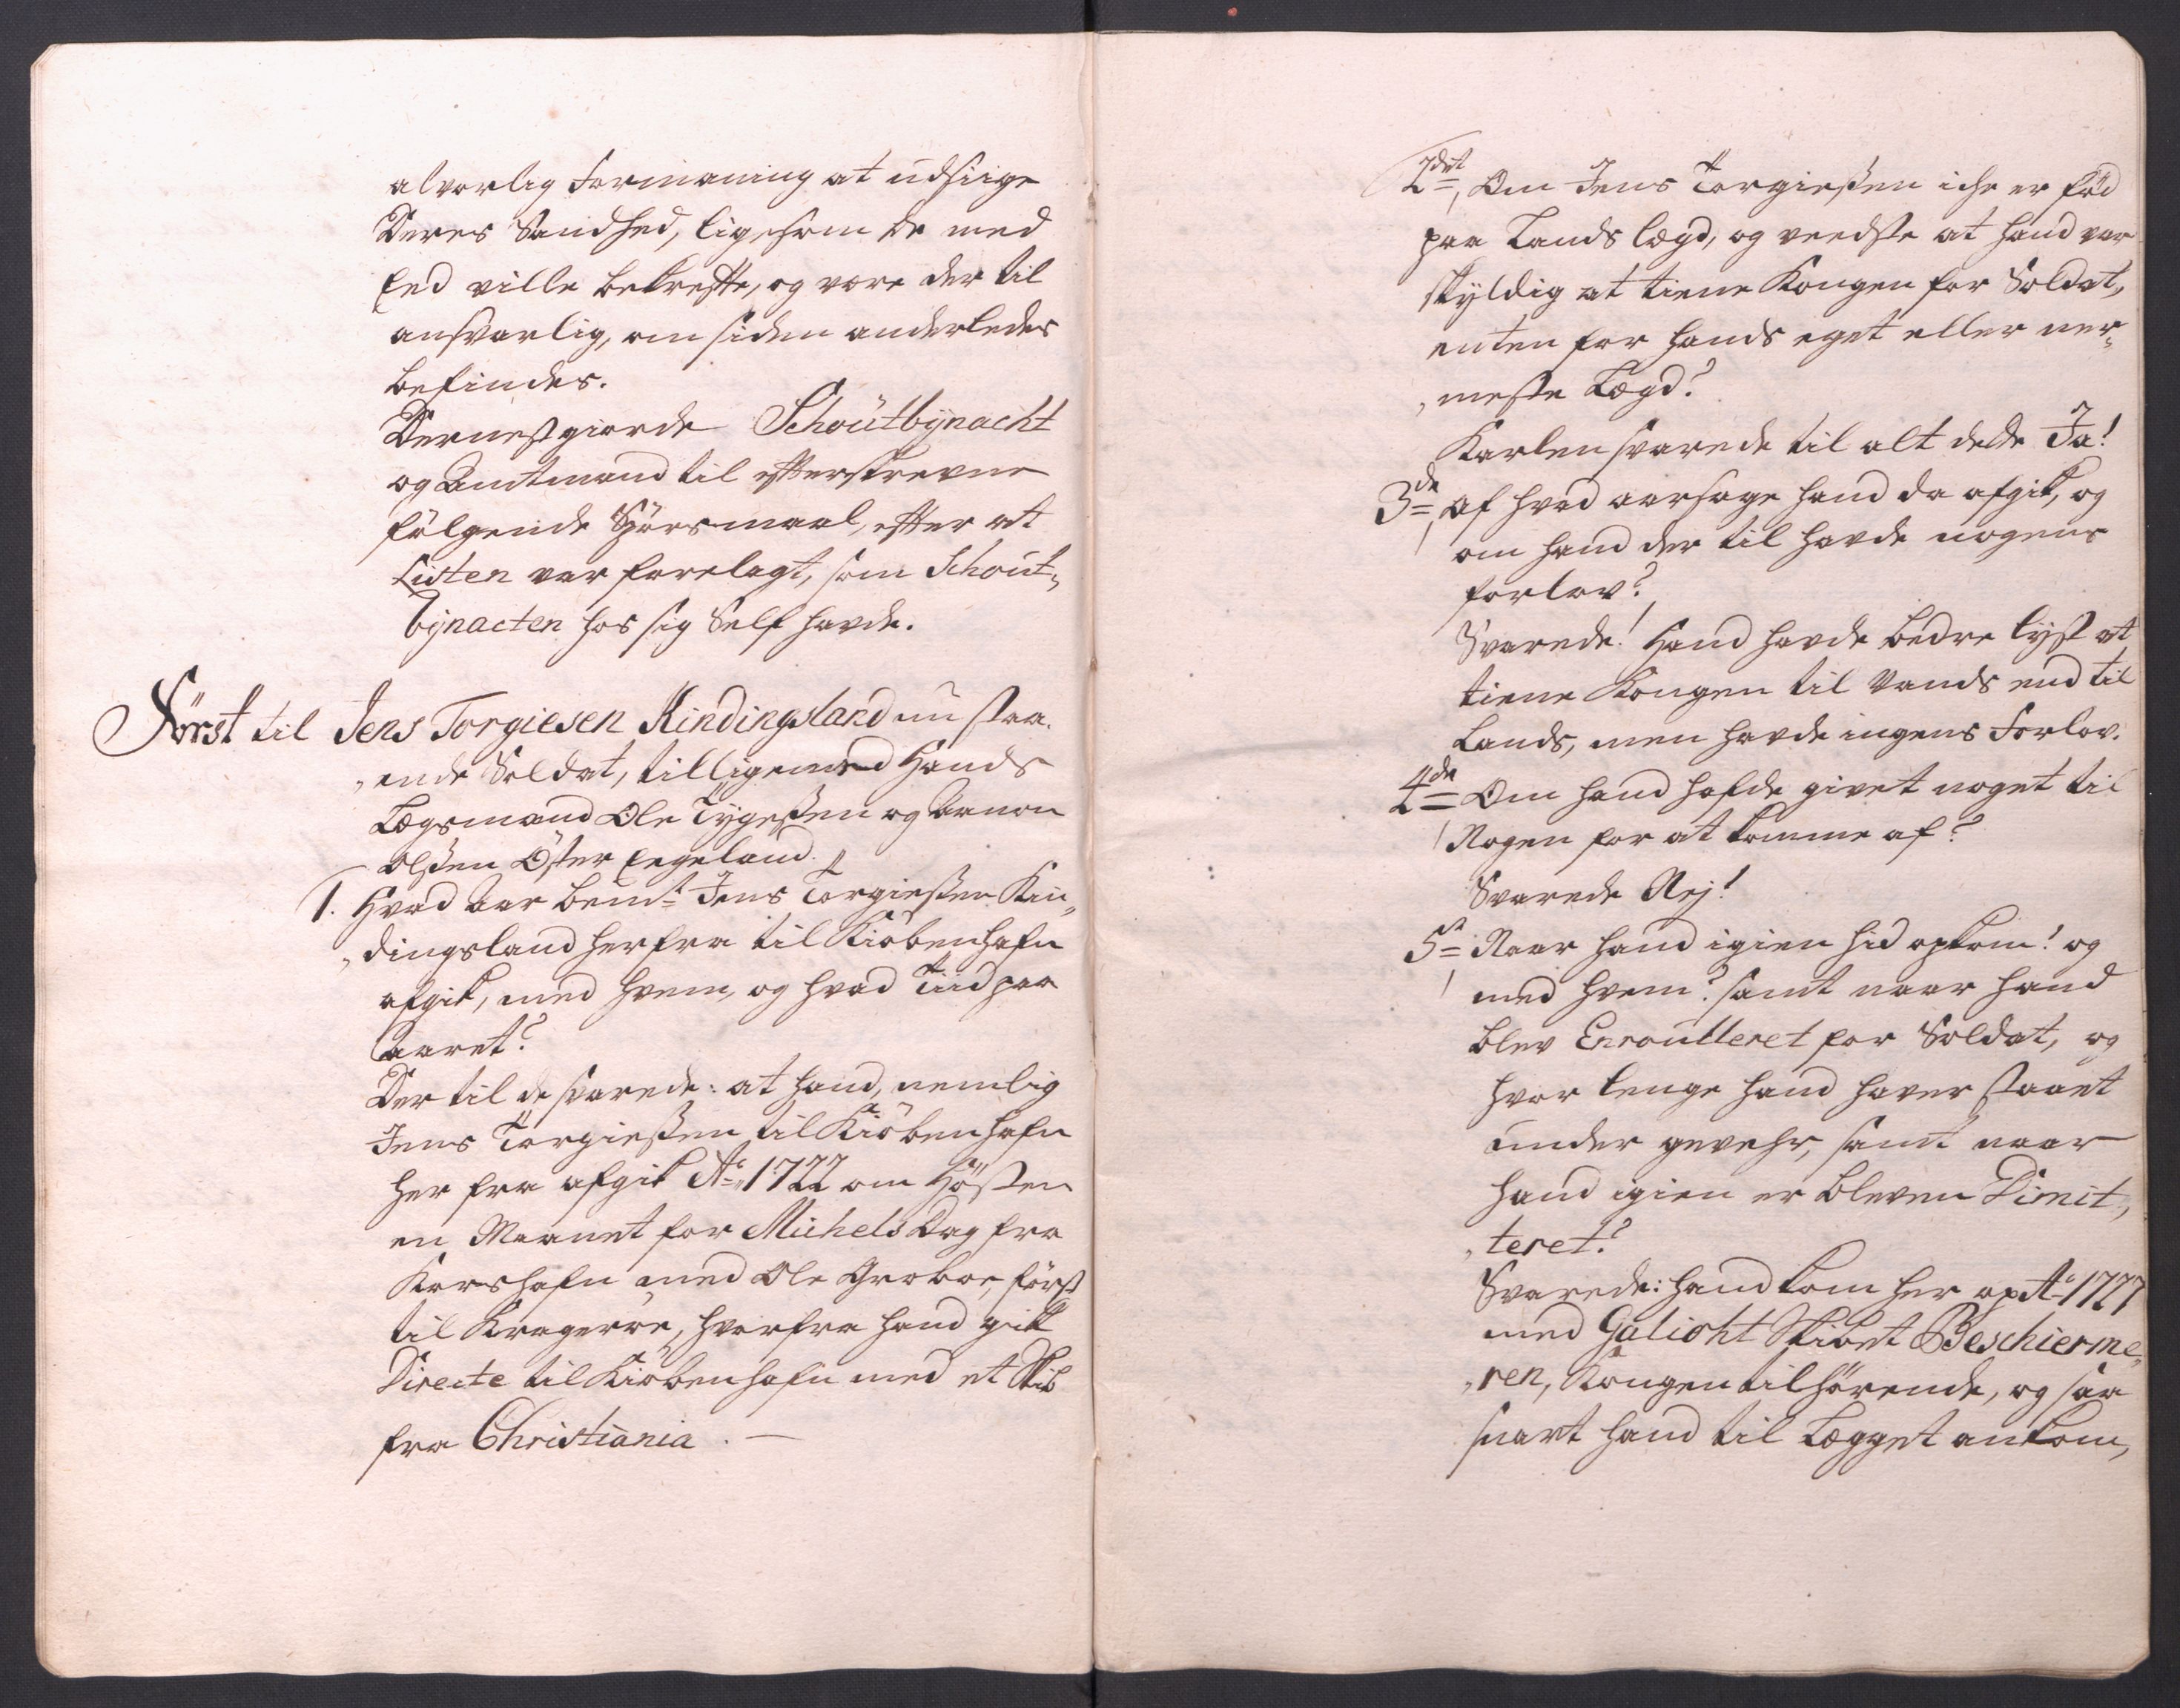 alvorlig formaning at udsiige
Deres Sandhed, ligesom de med
Eed ville bekreffte, og vore der til
ansvarlig, om siden anderledes
befindes.
Dernest giorde Schoütbÿnacht
og Amtmand til effterskrevne
fölgende Spörsmaal, effter at
Listen var forelagt, som Schoüt„
bÿnacten hos sig Self havde.
Först til Jens Torgiesen Kindingsland nu staa„
„ende Soldat, tilligemed Hands
Lægsmand Ole Tÿgeßen og Aanon
Olßen Öster Eegeland.
1. Hvad Aar bem.te Jens Torgießen Kin„
„dingsland herfra til Kiöbenhafn
afgik, med hvem, og hvad Tiid paa
Aaret?
Der til de svarede: at hand, nemlig
Jens Torgießen til Kiöbenhafn
her fra afgik Aº 1722 om Hösten
en Maanet for Michels Dag fra
Korshafn med Ole Groboe, först
til Krageröe, hvorfra hand gik
Directe til Kiöbenhafn med et Skib
fra Christiania. —
2det, Om Jens Torgießen iche er föd
paa Lands lægd, og veedste at hand var
skÿldig at tiene Kongen for Soldat,
enten for hands eget eller ner„
„meste Lægd?
Karlen svarede til alt dette Ja!
3de, Af hvad aarsage hand da afgik, og
om hand der til havde nogens
forlov?
Svarede! Hand havde bedre lÿst at
tiene Kongen til Vands end til
Lands, men havde ingens Forlov.
4de Om hand hafde givet noget til
Nogen for at komme af?
Svarede Nej!
5te Naar hand igien hid opkom! og
med hvem? samt naar hand
blev Enroulleret for Soldat, og
hvor lenge hand haver staaet
under gevehr, samt naar
hand igien er bleven Dimit„
„teret?
Svarede: hand kom her op Aº 1727
med Galioht Skibet Beschierme„
„ren, Kongen tilhörende, og saa
snart hand til Lægget ankom,